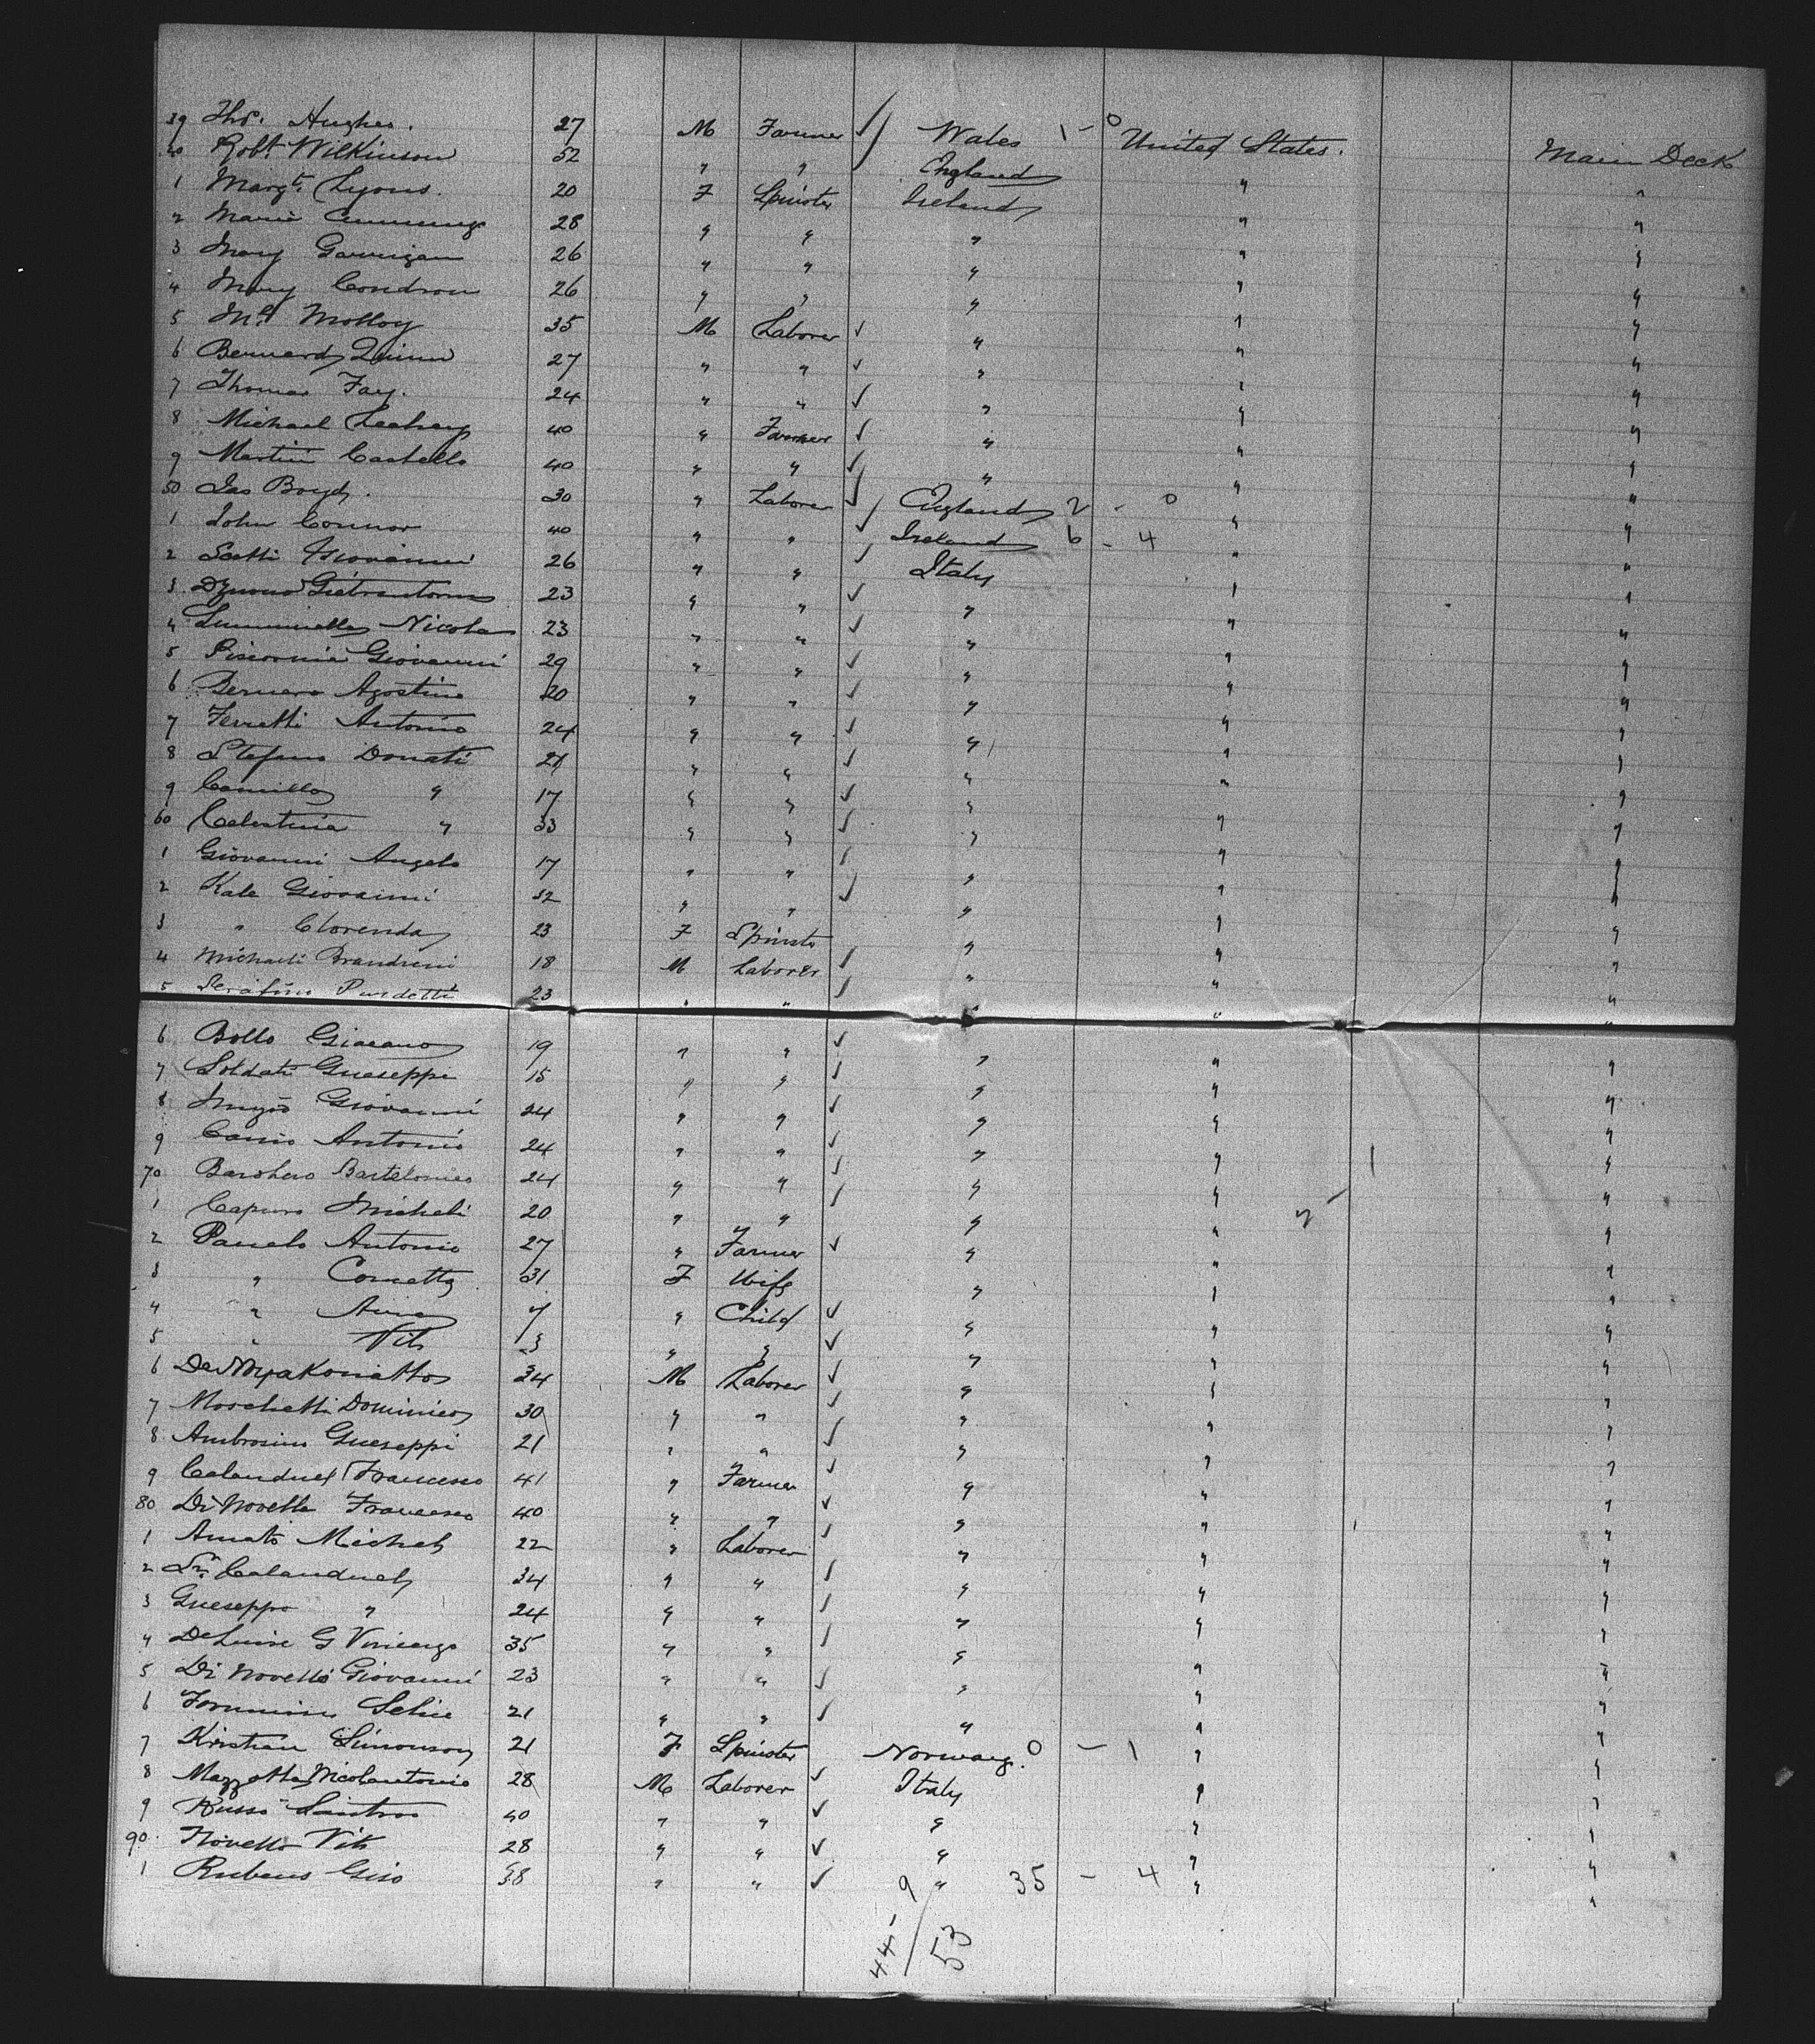 39 Thos. Hughes. 27 M Farmer Wales 1 - 0 United States. Main Deck
40 Robt. Wilkinson 52 " " England " "
1 Margt. Lyons. 20 F Spinster Ireland " "
2 Marie Cummings 28 " " " " "
3 Mary Garrigan 26 " " " " "
4 Mary Condron 26 " " " " "
5 Ml. Molloy 35 M Laborer " " "
6 Bernard Quinn 27 " " " " "
7 Thomas Fay. 24 " " " " "
8 Michael Leahey 40 " Farmer " " "
9 Martin Costello 40 " " " " "
50 Jas Boyd. 30 " Laborer England 2 - 0 " "
1 John Connor 40 " " Ireland 6 - 4 " "
2 Scetti Giovanni 26 " " Italy " "
3 23 " " " " "
4 Nicola 23 " " " " "
5 Giovanni 29 " " " " "
6 Agostino 20 " " " " "
7 Ferretti Antonio 24 " " " " "
8 Stefano Donati 21 " " " " "
9 Camillo " 17 " " " " "
60 Celestina " 33 " " " " "
1 Giovanni Angelo 17 " " " " "
2 Kale Giovanni 32 " " " " "
3 " Clorenda 23 F Spinster " " "
4 Michaeli Brandreni 18 M Laborer " " "
5 Serafino Purdetti 23 " " " " "
6 Bollo Giacano 19 " " " " "
7 Soldati Gueseppi 15 " " " " "
8 Giovanni 24 " " " " "
9 Canio Antonio 24 " " " " "
70 Bartelomeo 24 " " " " "
1 Capuro Micheli 20 " " " " "
2 Panelo Antonio 27 " Farmer " " "
3 " Cornetta 31 F Wife " " "
4 " Anna 7 " Child " " "
5 " Vito 3 " " " " "
6 34 M Laborer " " "
7 Morchetti Dominico 30 " " " " "
8 Ambrosino Gueseppi 21 " " " " "
9 Calanduch Francesco 41 " Farmer " " "
80 Di Novella Francesco 40 " " " " "
1 Amato Michel 22 " Laborer " " "
2 Calanduch 34 " " " " "
3 Gueseppo " 24 " " " " "
4 De Luise G Vincenzo 35 " " " " "
5 Di Novello Giovanni 23 " " " " "
6 21 " " " " "
7 Kristian Simonson 21 F Spinster Norway. 0 - 1 " "
8 Mazzotta Nicolantonio 28 M Laborer Italy " "
9 Russo 40 " " " " "
90. Novello Vito 28 " " " " "
1 Rubeno Giso 38 " " 9 " 35 - 4 " "
44 / 53